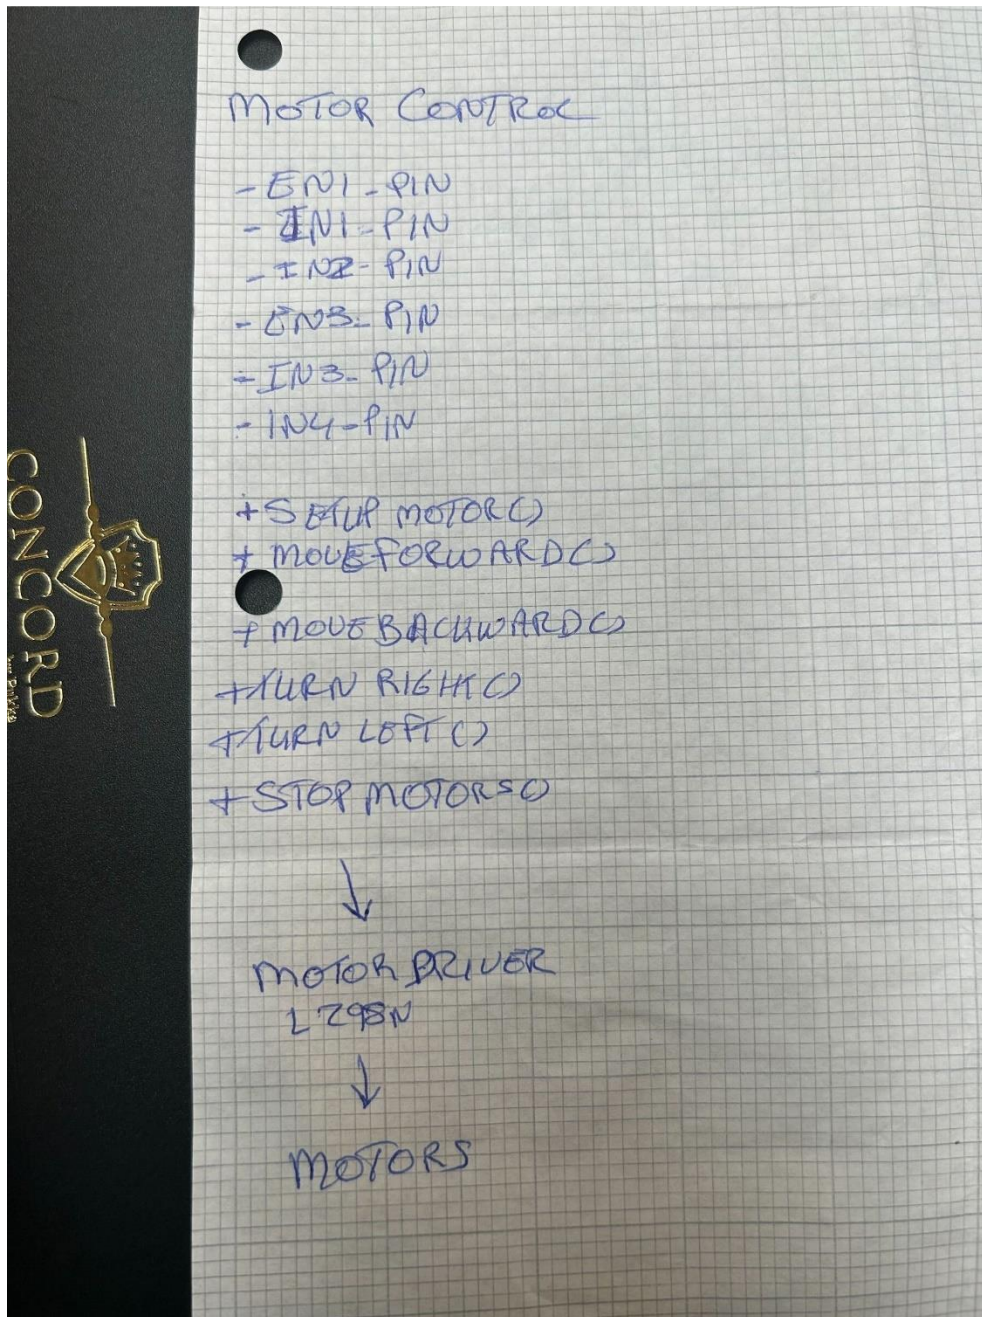 MOTOR CONTROL
- EN1 - PIN
- IN1 - PIN
- IN2 - PIN
- EN3 - PIN
- IN3 - PIN
- IN4 - PIN
+ SETUP MOTOR()
+ MOVEFORWARD()
+ MOVEBACKWARD()
+ TURN RIGHT()
+ TURN LEFT()
+ STOP MOTORS()
↓
MOTOR DRIVER
L298N
↓
MOTORS
CONCORD